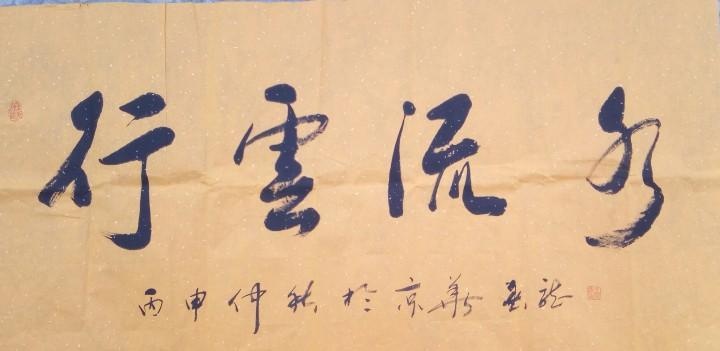 行雲流水
丙申仲秋於京華